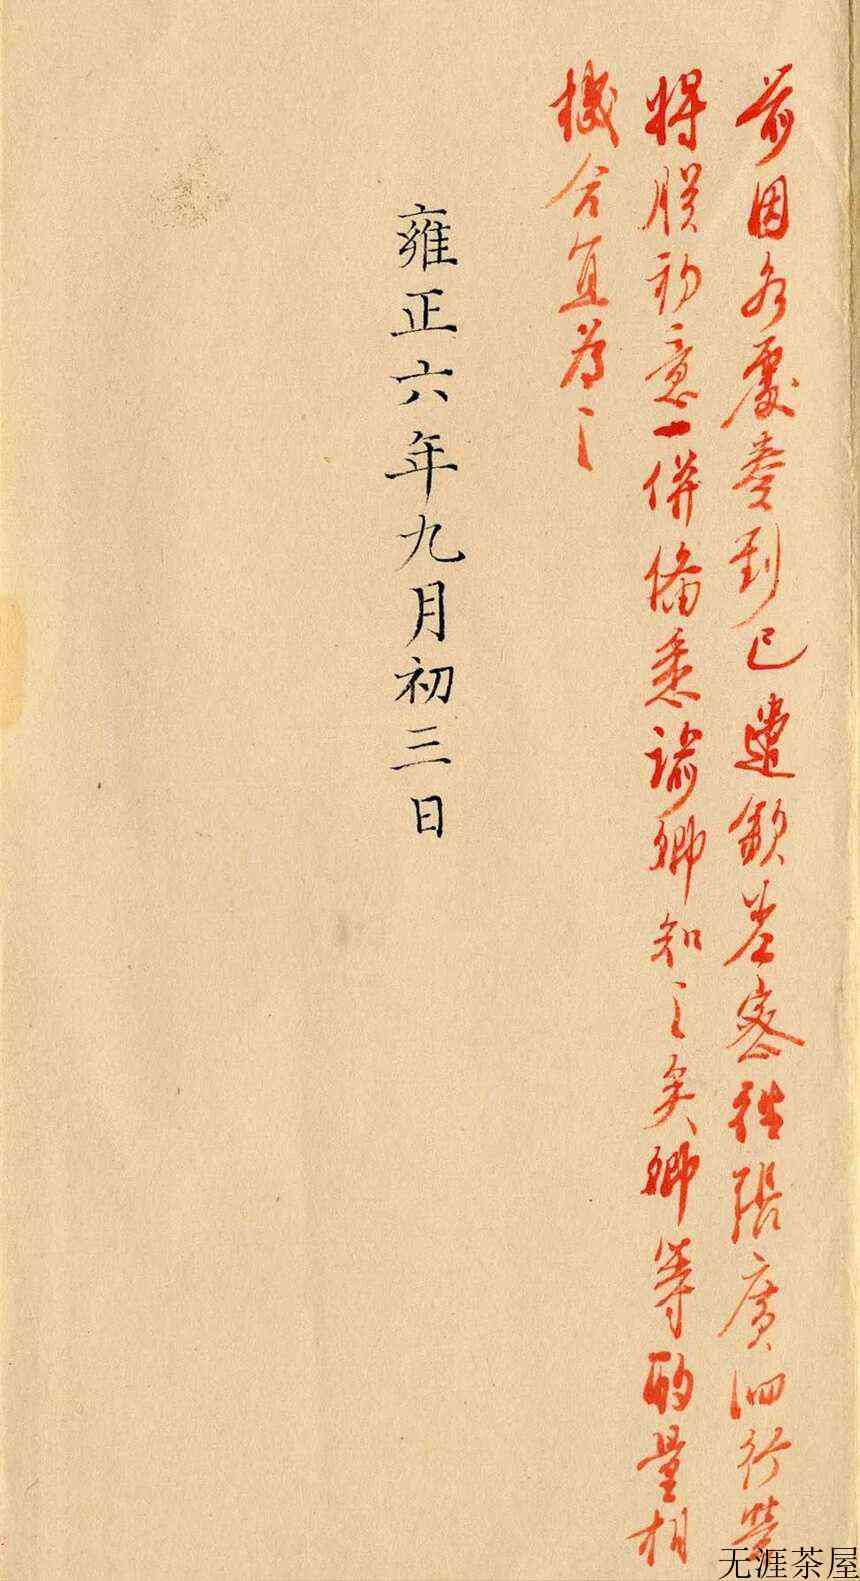 前因各處奏到已遣欽差密往張廣泗行營
將朕初意一併備悉諭卿知之矣卿等酌量相
機合宜為之
雍正六年九月初三日
无涯茶屋